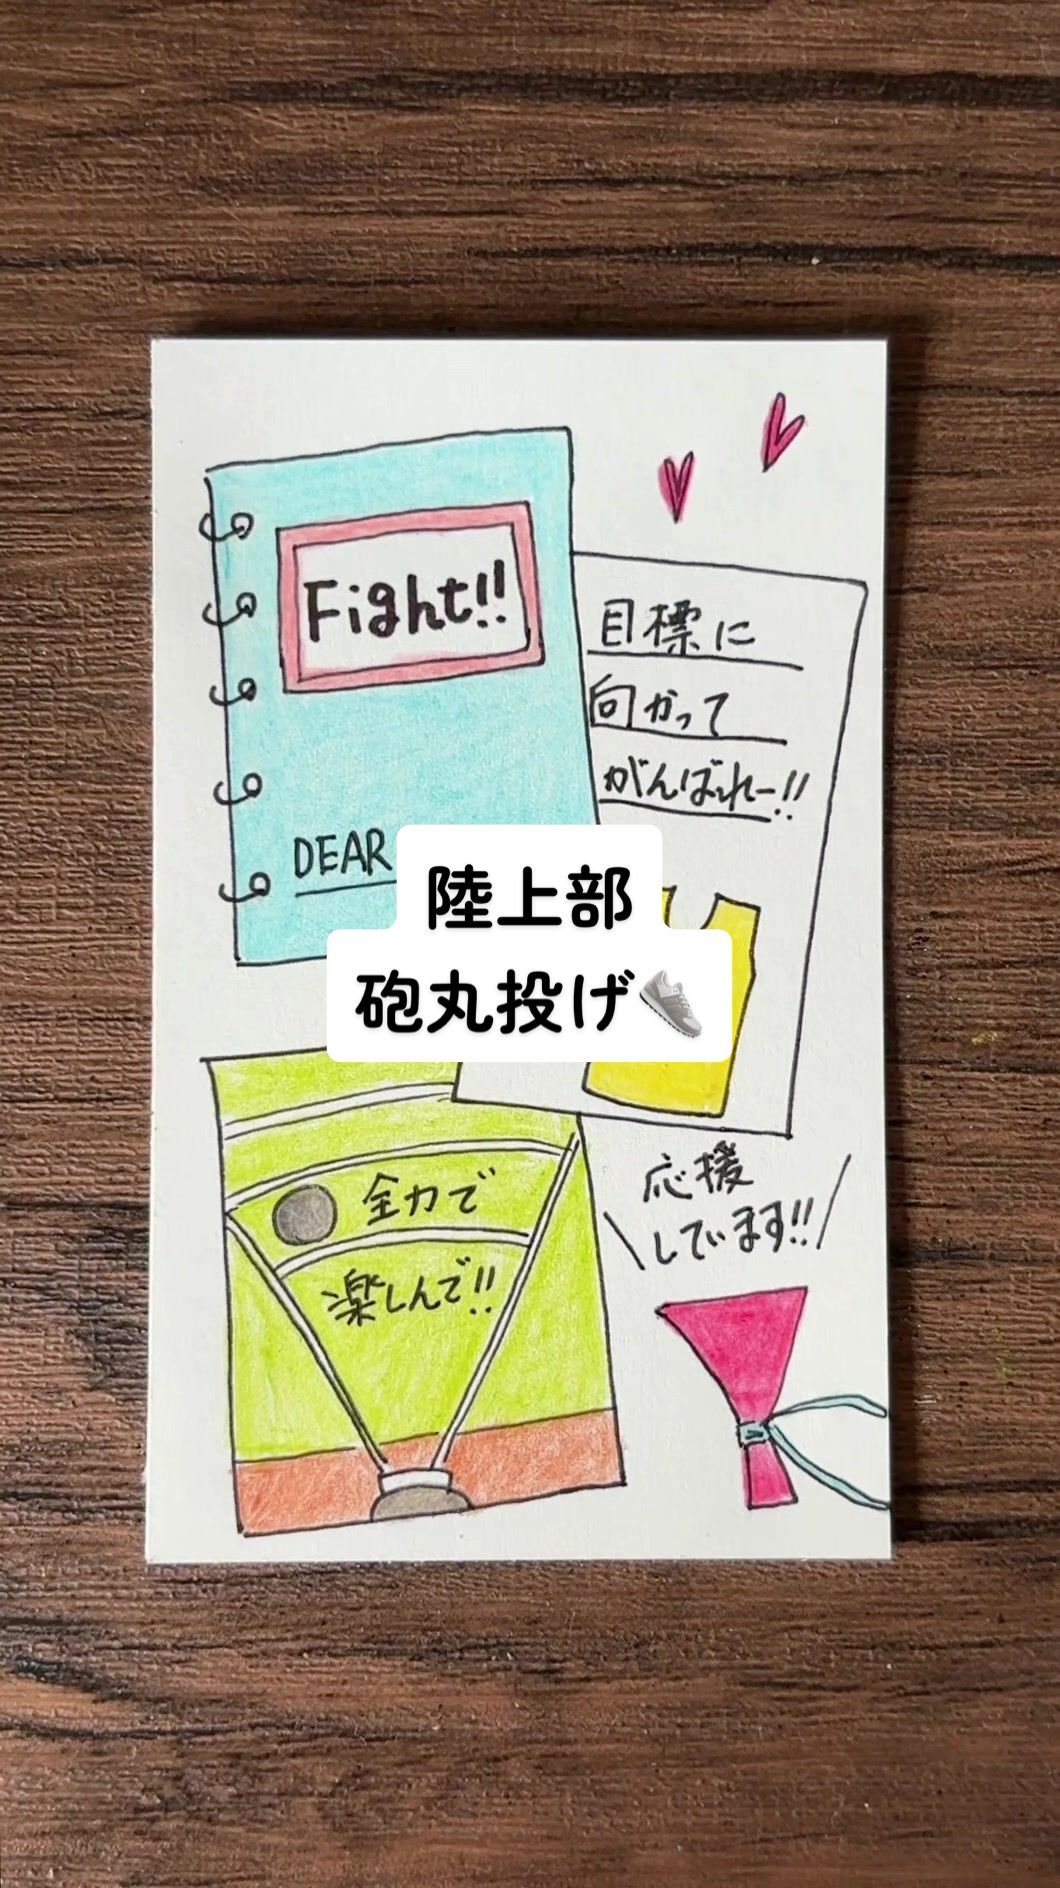 Fight!!
目標に
向かって
がんばれー!!
DEAR
陸上部
砲丸投げ
全力で
楽しんで!!
応援
しています!!